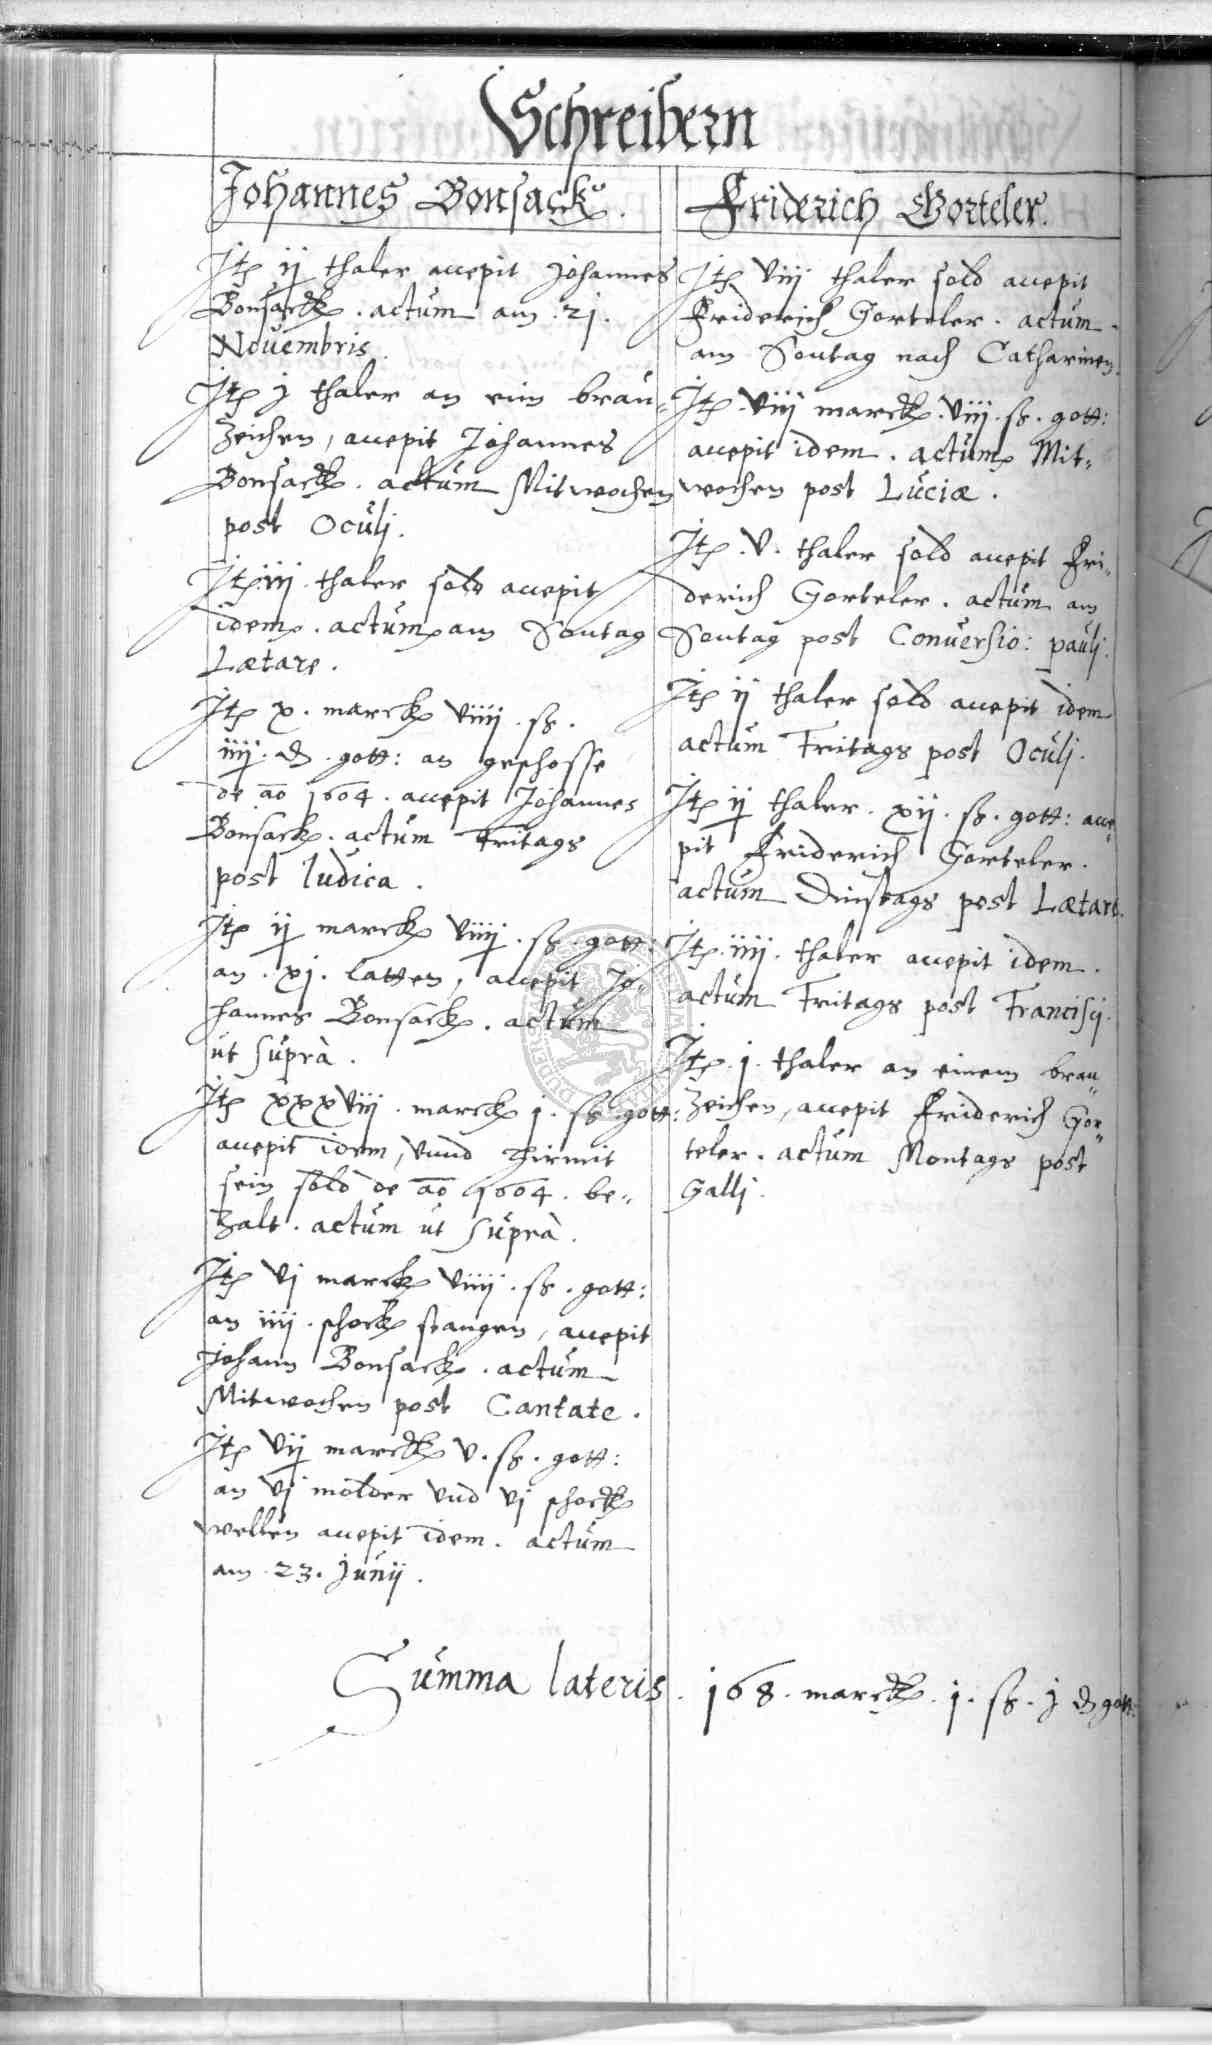 Schreibern
Johannes Bonsack.
Jtem ij thaler accepit Johannes
Bonsack. actum am .21.
Nouembris.
Jtem j thaler an eim brau„
Zeichen, accepit Johannes
Bonsack. actum Mitwochen
post Oculj.
Jtem iij thaler sold accepit
idem. actum am Sontag
Lætare.
Jtem x. marck viiij. ß.
iiij. ₰. gott: an geschosse
de ao 1604. accepit Johannes
Bonsack. actum Fritags
post Iudica.
Jtem ij marck viiij. ß. gott:
an .xj. latten, accepit Jo„
hannes Bonsack. actum
ut suprà.
Jtem xxxviij. marck j. ß. gott:
accepit idem, vnnd hirmit
sein sold de ao 1604. be„
Zalt. actum ut suprà.
Jtem vj marck viiij. ß. gott:
an iiij. schock stangen, accepit
Johann Bonsack. actum
Mitwochen post Cantate.
Jtem vij marck v. ß. gott:
an vj molder vnd vj schock
wellen accepit idem. actum
am .23. Junij.
Friderich Gorteler.
Jtem viij thaler sold accepit
Friderich Gorteler. actum
am Sontag nach Catharinen.
Jtem .viij marck .viij. ß. gott:
accepit idem. actum Mit„
wochen post Luciæ.
Jtem .v. thaler sold accepit Fri„
derich Gorteler. actum am
Sontag post Conuersio: paulj.
Jtem ij thaler sold accepit idem
actum Fritags post Oculj.
Jtem ij thaler. xij. ß. gott: acce„
pit Friderich Gorteler.
actum Dinstags post Lætare.
Jtem .iiij. thaler accepit idem.
actum Fritags post Francisij.
Jtem .j. thaler an einem brau„
Zeichen, accepit Friderich Gor„
teler. actum Montags post
Gallj.
Summa lateris. 168. marck. j. ß. j ₰ gott: